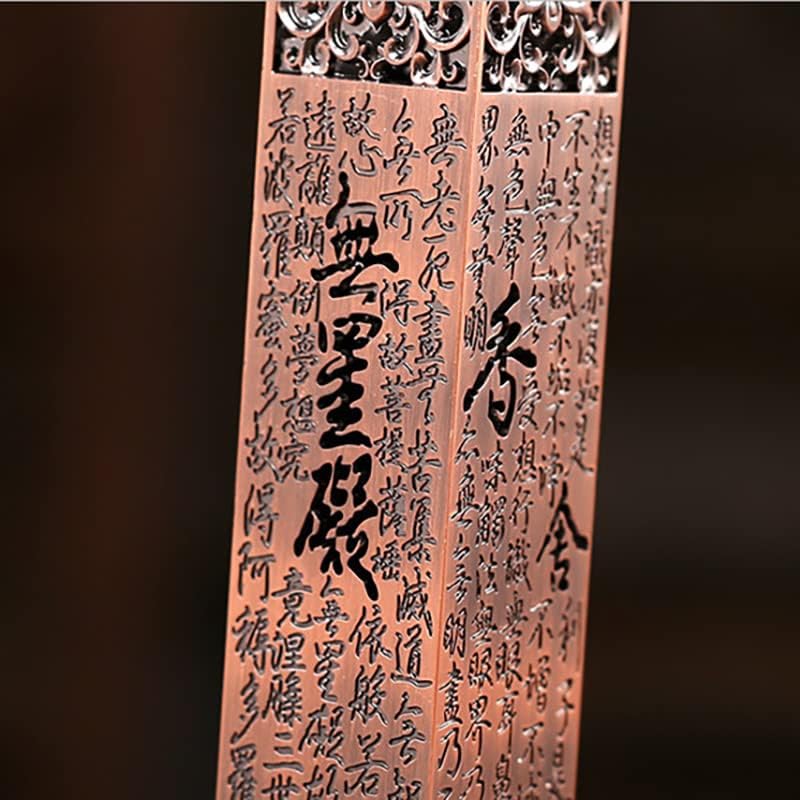 想行識亦復如是舍利子是
不生不滅不垢不淨不增不減
中無色無受想行識無眼耳鼻
無色聲香味觸法無眼界乃
界無無明亦無無明盡乃
無老死盡無苦集滅道無
無所得故菩提薩埵依般若
故心無罣礙無罣礙故
遠離顛倒夢想究竟涅槃三世
若波羅蜜多故得阿耨多羅